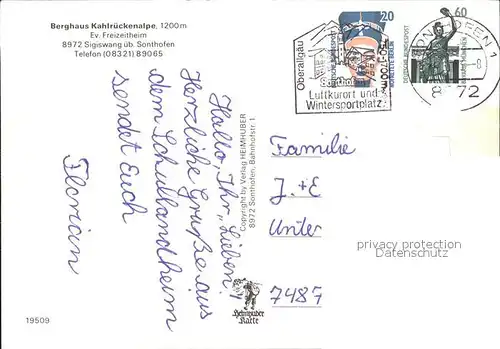 Berghaus Kahlrückenalpe, 1200m
Ev. Freizeitheim
8972 Sigiswang üb. Sonthofen
Telefon (08321) 89065
Hallo, Ihr „Lieben"!
Herzliche Grüße aus
dem Schullandheim
sendet Euch
Florian
Copyright by Verlag HEIMHUBER
8972 Sonthofen, Bahnhofstr. 1
Heimhuber
Karte
19509
Oberallgäu
750-1700m
Luftkurort und
Wintersportplatz
20
DEUTSCHE BUNDESPOST
60
DEUTSCHE BUNDESPOST
8972
Familie
J.+E
7487
privacy protection
Datenschutz